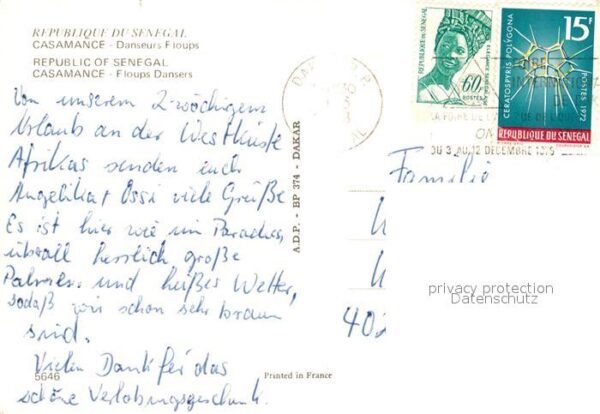 REPUBLIQUE DU SENEGAL
CASAMANCE - Danseurs Floups
REPUBLIC OF SENEGAL
CASAMANCE - Floups Dansers
Von unserem 2-wöchigem
Urlaub an der Westküste
Afrikas senden euch
Angelika + Ossi viele Grüße
Es ist hier wie im Paradies,
überall herrlich große
Palmen und heißes Wetter,
sodaß wir schon sehr braun
sind.
Vielen Dank für das
schöne Verlobungsgeschenk.
5646
Printed in France
A.D.P. - BP 374 - DAKAR
REPUBLIQUE DU SENEGAL
60F
POSTES
ELEGANCE SENEGALAISE
15F
CERATOSPYRIS POLYGONA
POSTES 1972
REPUBLIQUE DU SENEGAL
LA FOIRE DE
DU 3 AU 12 DECEMBRE
Familie
402
privacy protection
Datenschutz